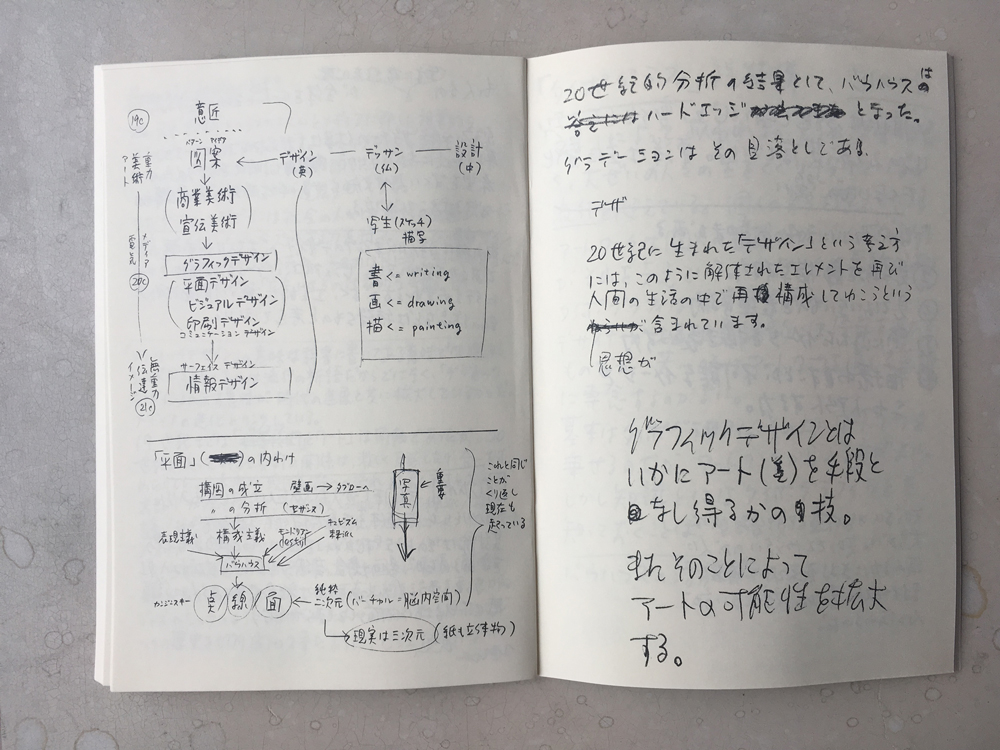 19c
意匠
パターン アイデア
図案 ← デザイン — デッサン — 設計
(英) (仏) (中)
重力
美術
アート
商業美術
宣伝美術
写生(スケッチ)
描写
メディア
電気
20c
グラフィックデザイン
平面デザイン
ビジュアルデザイン
印刷デザイン
コミュニケーションデザイン
書 <= writing
画 <= drawing
描 <= painting
サーフェイスデザイン
情報デザイン
無重力
伝達
イメージ
21c
「平面」( )の内わけ
構図の成立 壁画→タブローへ
〃の分析 (セザンヌ)
表現主義 構成主義 モンドリアン キュビズム
バウハウス
カンジンスキー 点/線/面 ← 純粋二次元(バーチャル=脳内空間)
現実は三次元(紙も立体物)
写真 ← 重要
これと同じ
ことが
くり返し
現在も
起こっている
20世紀的分析の結果として、バウハウスは
ハードエッジとなった。
グラデーションはその目落としである
デザ
20世紀に生まれた「デザイン」という考え方
には、このように解体されたエレメントを再び
人間の生活の中で再構成してゆこうという
思想が
含まれています。
グラフィックデザインとは
いかにアート(美)を手段と
なし得るかの技。
またそのことによって
アートの可能性を拡大
する。